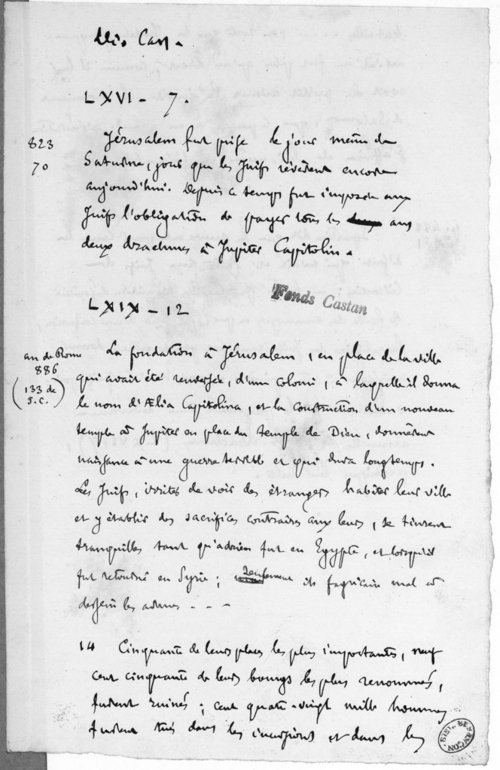 Dio Cass.
LXVI - 7.
823
70
Jérusalem fut prise le jour même de
Saturne, jour que les Juifs révèrent encore
aujourd'hui. Depuis ce temps fut imposée aux
Juifs l'obligation de payer tous les ans
deux drachmes à Jupiter Capitolin.
Fonds Castan
LXIX - 12
an de Rome
886
(133 de
J.C.)
La fondation à Jérusalem, en place de la ville
qui avait été renversée, d'une colonie, à laquelle il donna
le nom d'Ælia Capitolina, et la construction d'un nouveau
temple à Jupiter en place du temple de Dieu, donnèrent
naissance à une guerre terrible et qui dura longtemps.
Les Juifs, irrités de voir des étrangers habiter leur ville
et y établir des sacrifices contraires aux leurs, se tinrent
tranquilles tant qu'adrien fut en Egypte, et lorsqu'il
fut retourné en Syrie; seulement ils fabriquaient mal à
dessein les armes - - -
14 Cinquante de leurs places les plus importantes, neuf
cent cinquante de leurs bourgs les plus renommés,
furent ruinés; cent quatre-vingt mille hommes
furent tués dans les incursions et dans les